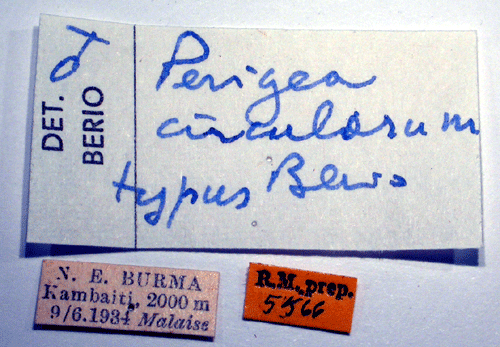 DET. ♂
BERIO
Perigea
circulorum
typus Berio
N. E. BURMA
Kambaiti, 2000 m
9/6.1934, Malaise
R.M. prep.
5566